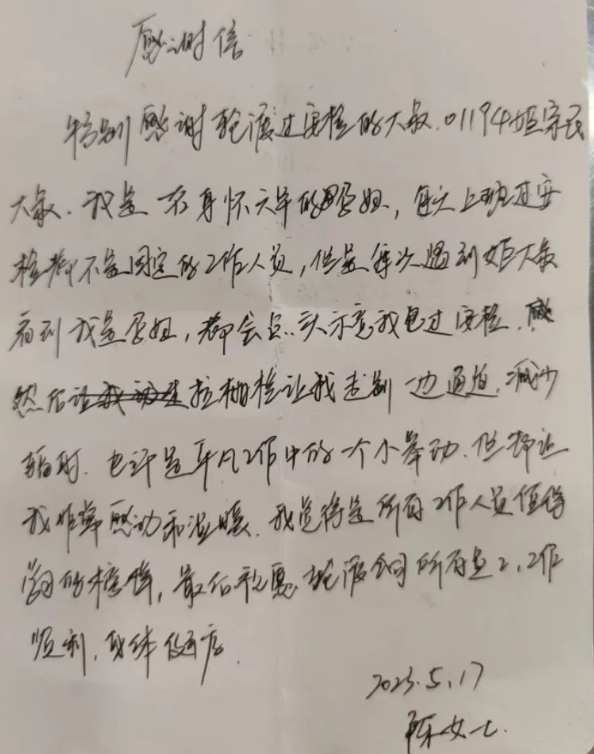 感谢信
特别感谢轮渡过安检的大叔.01194姬宗民
大叔.我是一名身怀六甲的孕妇,每天上班过安
检都不是固定的工作人员,但是每次遇到姬大叔
看到我是孕妇,都会点头示意我包过安检.
然后拉栅栏让我走到一边通道.减少
辐射.也许是平凡工作中的一个小举动.但却让
我非常感动和温暖.我觉得是所有工作人员值得
学习的榜样,最后祝愿轮渡公司所有员工,工作
顺利.身体健康.
2023.5.17
陈女士.